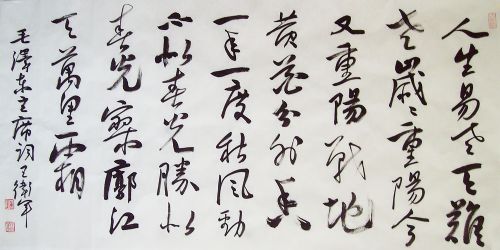 人生易老天難
老歲〻重陽今
又重陽戰地
黄花分外香
一年一度秋風勁
不似春光勝似
春光寥廓江
天萬里霜
毛澤東主席詞